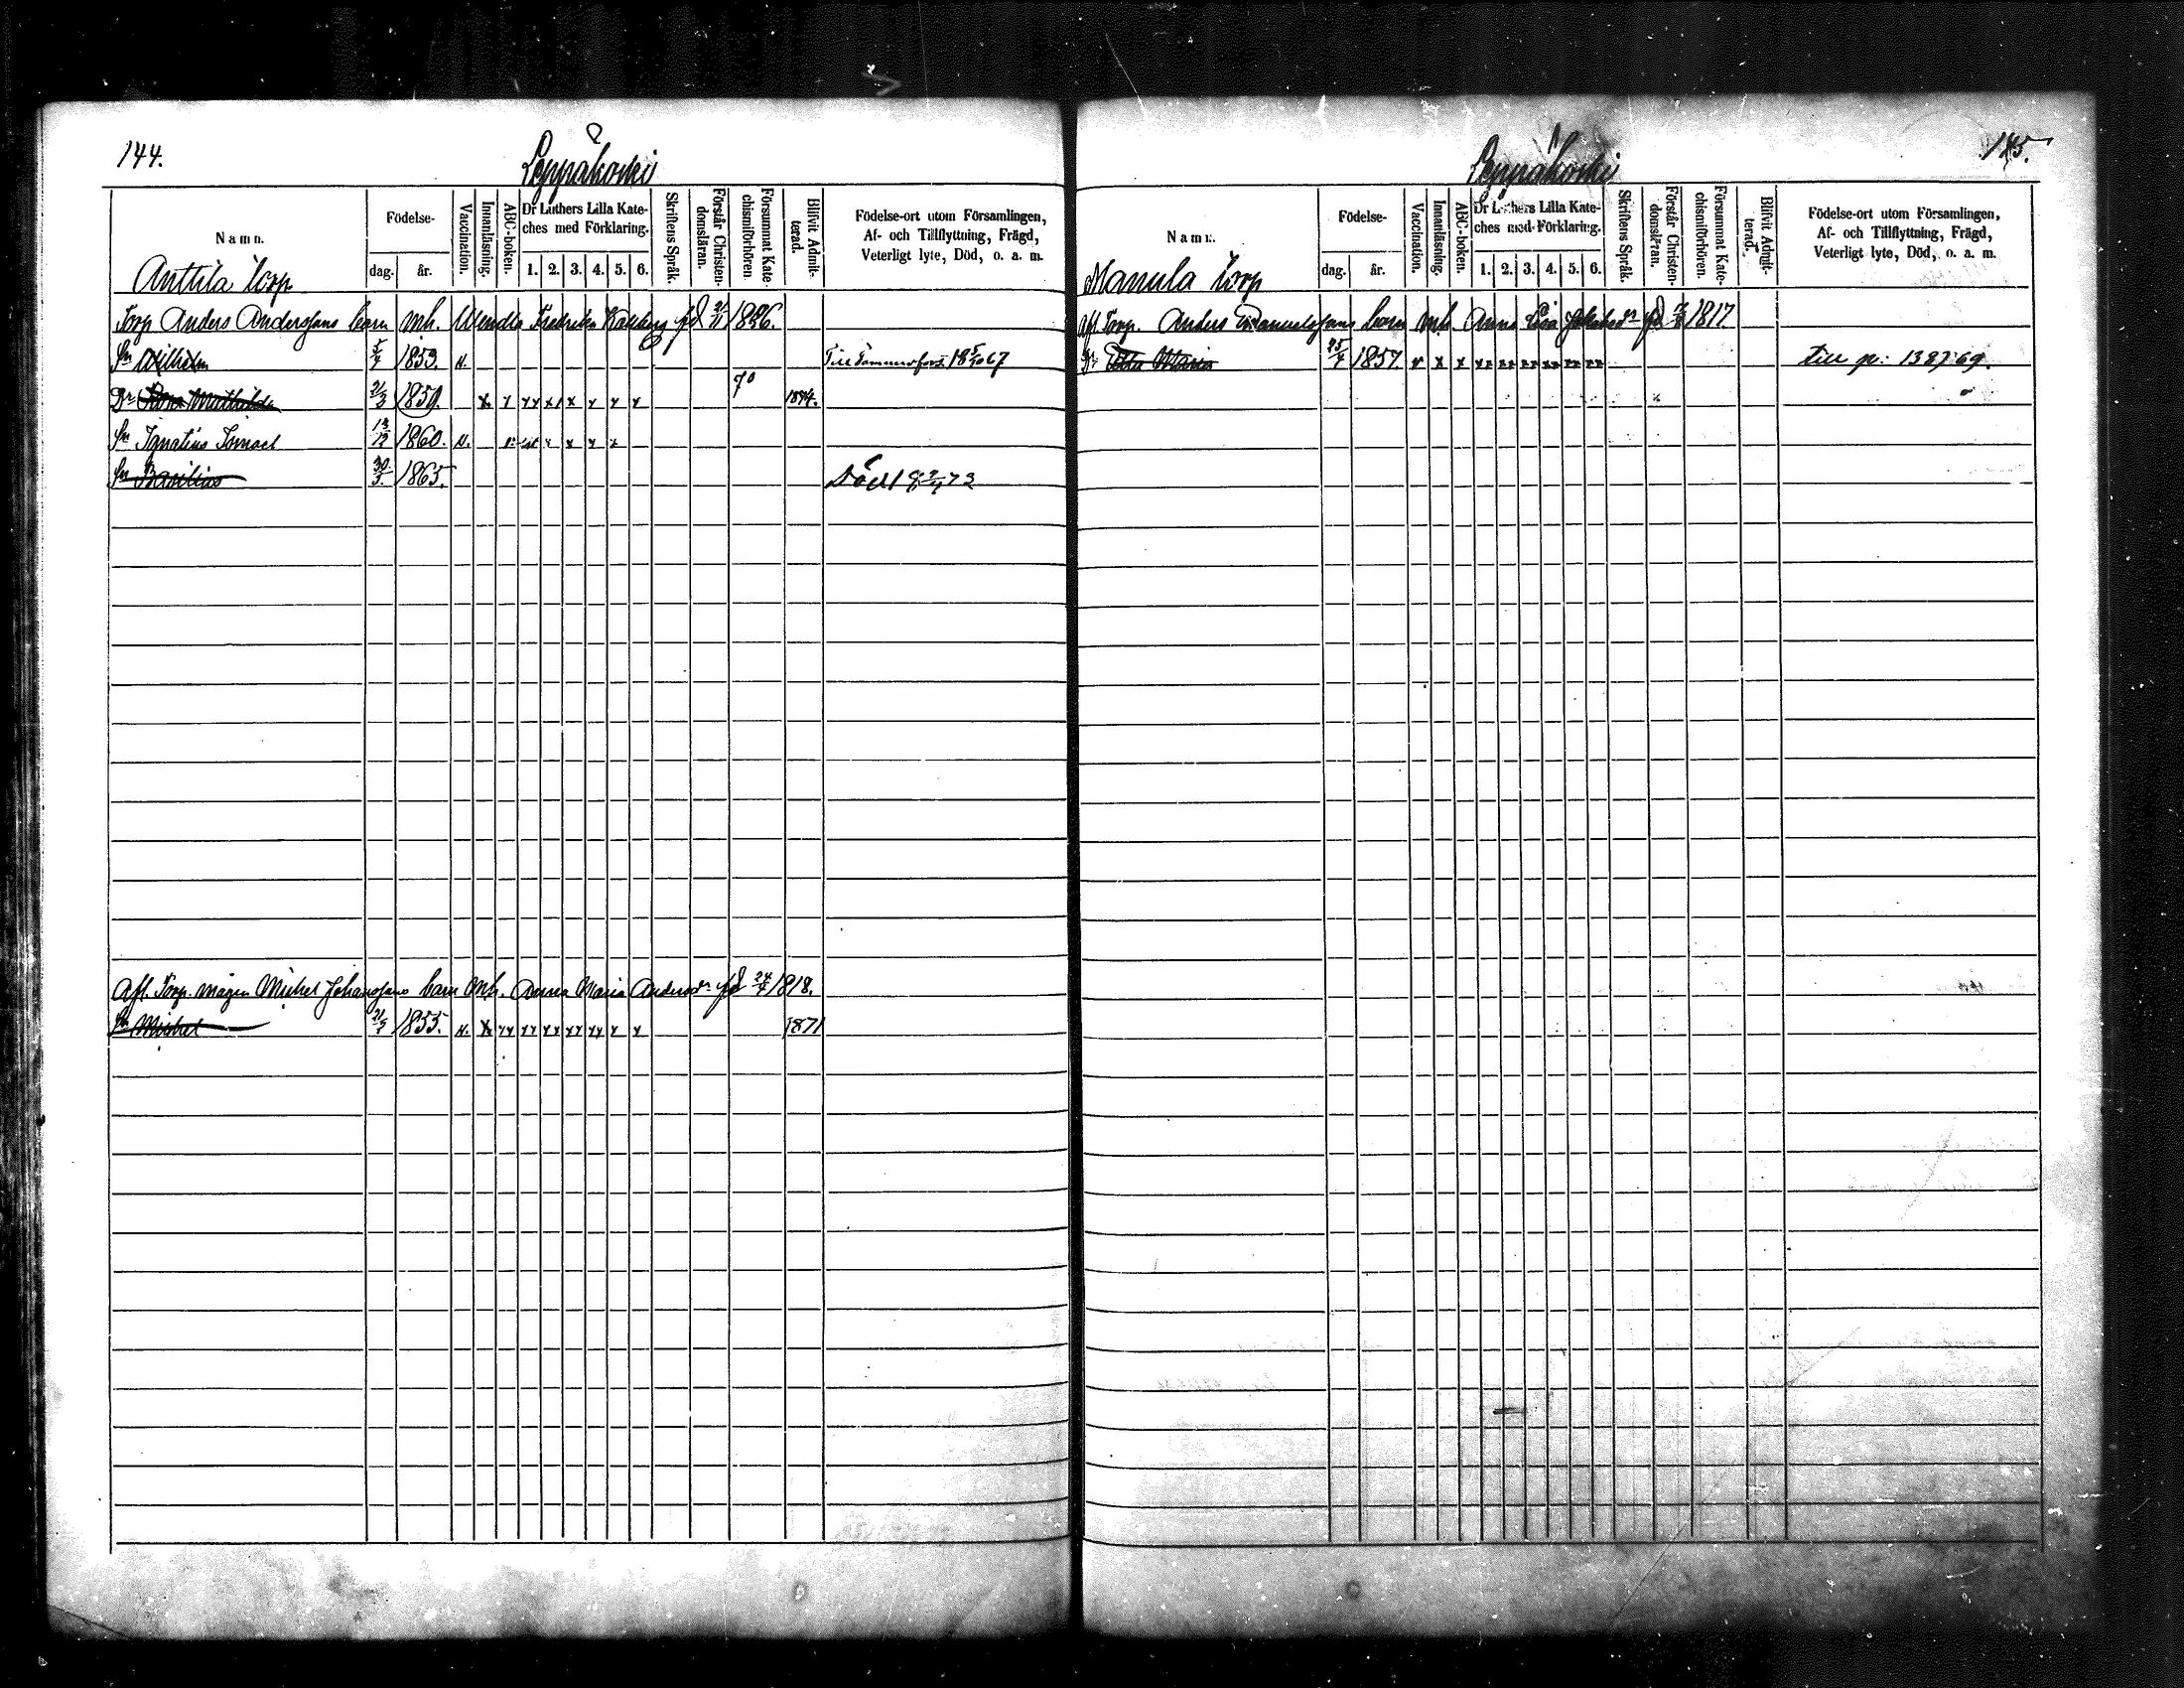 144.
Leppäkoski
Namn.
Födelse-
dag.
år.
Vaccination.
Innanläsning.
ABC-boken.
Dr Luthers Lilla Kate-
ches med Förklaring.
1. 2. 3. 4. 5. 6.
Skriftens Språk.
Förstår Christen-
domsläran.
Försummat Kate-
chismiförhören
Blifvit Admit-
terad.
Födelse-ort utom Församlingen,
Af- och Tillflyttning, Frägd,
Veterligt lyte, Död, o. a. m.
Anttila torp
Torp Anders Andersfons barn mh. Wendla Fredrika född 1826.
Sn Wilhelm 5/4 1853. v. Till Tammerfors 18 5/10 67
Dr Mathilda 21/3 1850. x x xx x x x x x 70 1874.
Sn Ignatius Ismael 12/12 1860. v.
Sn Basilius 30/3. 1865. Död 18 2/4 73
Afl. Torp. mågen Michel Johansfons barn mh. Anna Maria Andersdr född 24/4 1818.
Sn Michel 21/5 1855. v. x xx xx xx xx xx x x 1871
145.
Leppäkoski
Namn.
Födelse-
dag.
år.
Vaccination.
Innanläsning.
ABC-boken.
Dr Luthers Lilla Kate-
ches med Förklaring.
1. 2. 3. 4. 5. 6.
Skriftens Språk.
Förstår Christen-
domsläran.
Försummat Kate-
chismiförhören.
Blifvit Admit-
terad.
Födelse-ort utom Församlingen,
Af- och Tillflyttning, Frägd,
Veterligt lyte, Död, o. a. m.
Manula torp
Afl. Torp. Anders Emanuelsfons barn mh. Anna Lisa Jakobsdr född 1817.
Dr Maria 25/4 1857. v x x xx xx xx xx xx xx till p: 138 69.